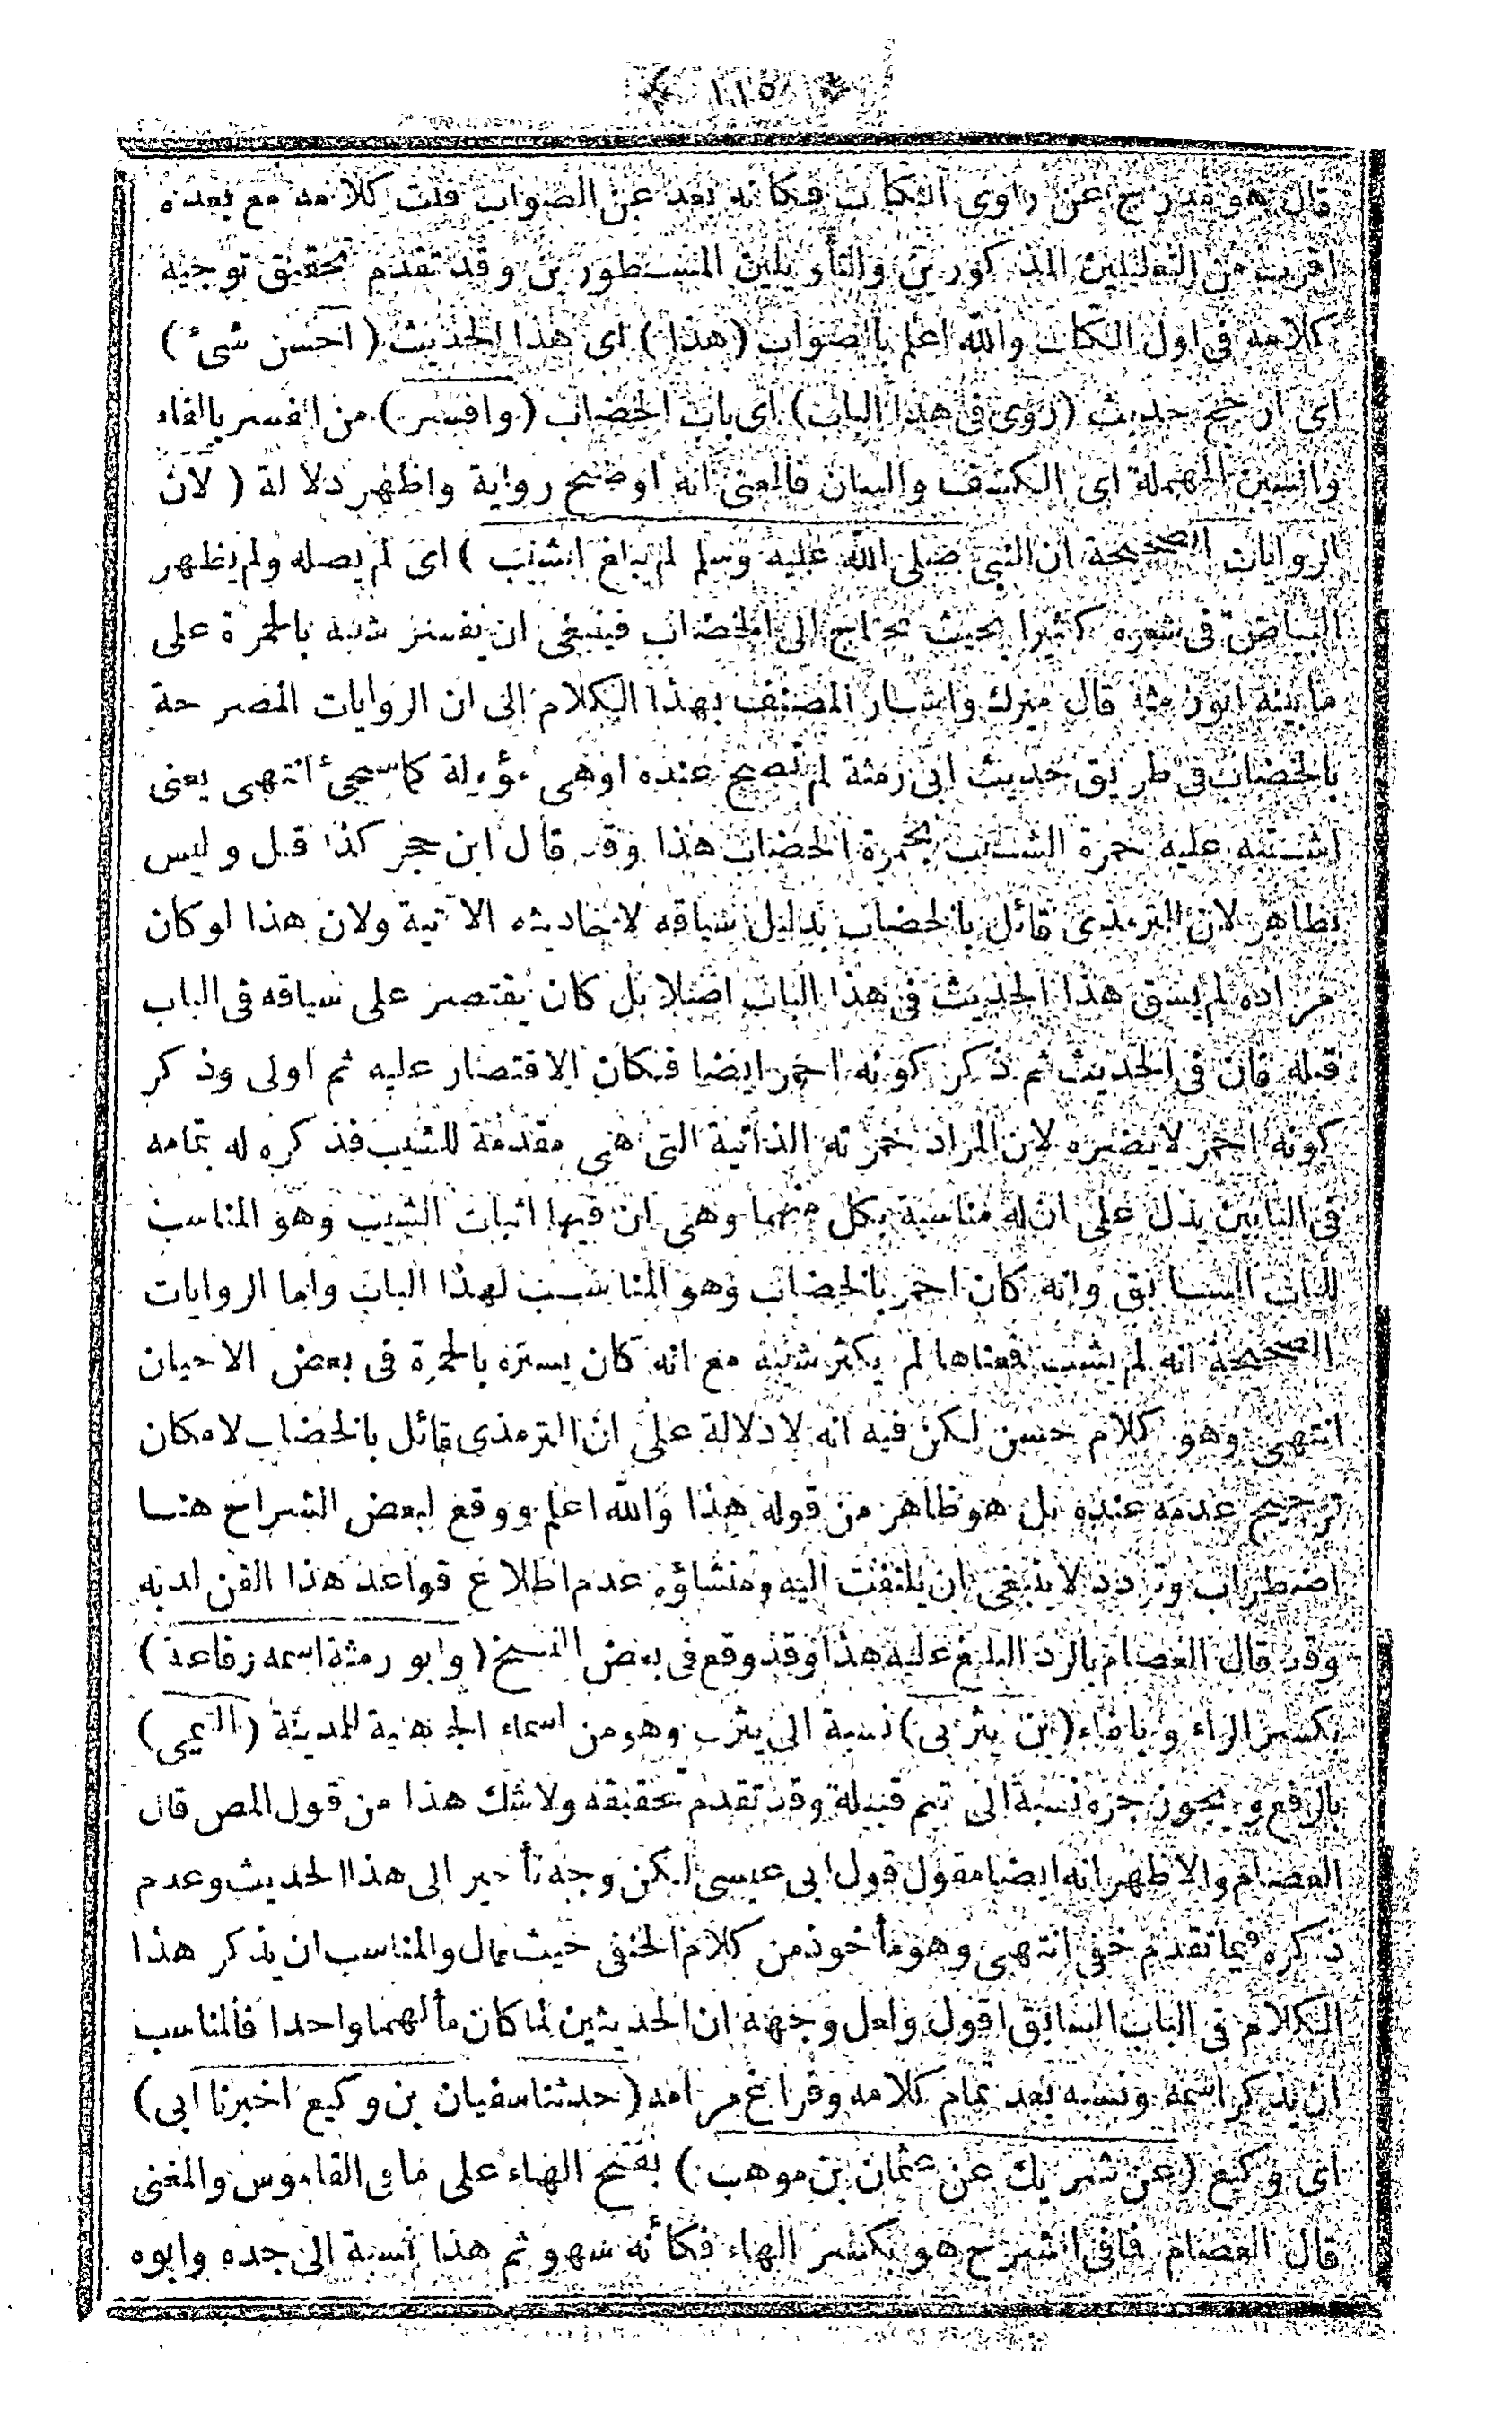 ١١٥
قال هو مدرج عن راوى الكتاب فكانه بعد عن الصواب قلت كلامه مع بعده
اقرب من التعليلين المذكورين والتأويلين المسطورين وقد تقدم تحقيق توجيه
كلامه فى اول الكتاب والله اعلم بالصواب (هذا) اى هذا الحديث (احسن شئ)
اى ارجح حديث (روى فى هذا الباب) اى باب الخضاب (وافسر) من الفسر بالفاء
والسين المهملة اى الكشف والبيان فالمعنى انه اوضح رواية واظهر دلالة (لان
الروايات الصحيحة ان النبى صلى الله عليه وسلم لم يبلغ الشيب) اى لم يصله ولم يظهر
البياض فى شعره كثيرا بحيث يحتاج الى الخضاب فينبغى ان يفسر شيبه بالحمرة على
ما بينه ابو رمثة قال ميرك واشار المصنف بهذا الكلام الى ان الروايات المصرحة
بالخضاب فى طريق حديث ابى رمثة لم تصح عنده اوهى مؤولة كما سيجئ انتهى يعنى
اشتبه عليه حمرة الشيب بحمرة الخضاب هذا وقد قال ابن حجر كذا قيل وليس
بظاهر لان الترمذى قائل بالخضاب بدليل سياقه لاحاديثه الآتية ولان هذا لو كان
مراده لم يسق هذا الحديث فى هذا الباب اصلا بل كان يقتصر على سياقه فى الباب
قبله فان فى الحديث ثم ذكر كونه احمر ايضا فكان الاقتصار عليه ثم اولى وذكر
كونه احمر لا يضره لان المراد حمرته الذاتية التى هى مقدمة للشيب فذكره له بتمامه
فى البابين يدل على ان له مناسبة بكل منهما وهى ان فيها اثبات الشيب وهو المناسب
للباب السابق وانه كان احمر بالخضاب وهو المناسب لهذا الباب واما الروايات
الصحيحة انه لم يشب فمعناها لم يكثر شيبه مع انه كان يستره بالحمرة فى بعض الاحيان
انتهى وهو كلام حسن لكن فيه انه لا دلالة على ان الترمذى قائل بالخضاب لامكان
ترجيح عدمه عنده بل هو ظاهر من قوله هذا والله اعلم ووقع لبعض الشراح هنا
اضطراب وتردد لا ينبغى ان يلتفت اليه ومنشاؤه عدم اطلاع قواعد هذا الفن لديه
وقد قال العصام بالرد البليغ عليه هذا وقد وقع فى بعض النسخ (وابو رمثة اسمه رفاعة)
بكسر الراء وبالفاء (بن يثربى) نسبة الى يثرب وهو من اسماء الجاهلية للمدينة (التيمى)
بالرفع ويجوز جره نسبة الى تيم قبيلة وقد تقدم تحقيقه ولا شك هذا من قول المص قال
العصام والاظهر انه ايضا مقول قول ابى عيسى لكن وجه تأخير الى هذا الحديث وعدم
ذكره فيما تقدم خفى انتهى وهو مأخوذ من كلام الحنفى حيث قال والمناسب ان يذكر هذا
الكلام فى الباب السابق اقول ولعل وجهه ان الحديثين لما كان مألهما واحدا فالمناسب
ان يذكر اسمه ونسبه بعد تمام كلامه وفراغ مرامه (حدثنا سفيان بن وكيع اخبرنا ابى)
اى وكيع (عن شريك عن عثمان بن موهب) بفتح الهاء على ما فى القاموس والمغنى
قال العصام فافى الشرح هو بكسر الهاء فكأنه سهو ثم هذا نسبة الى جده وابوه